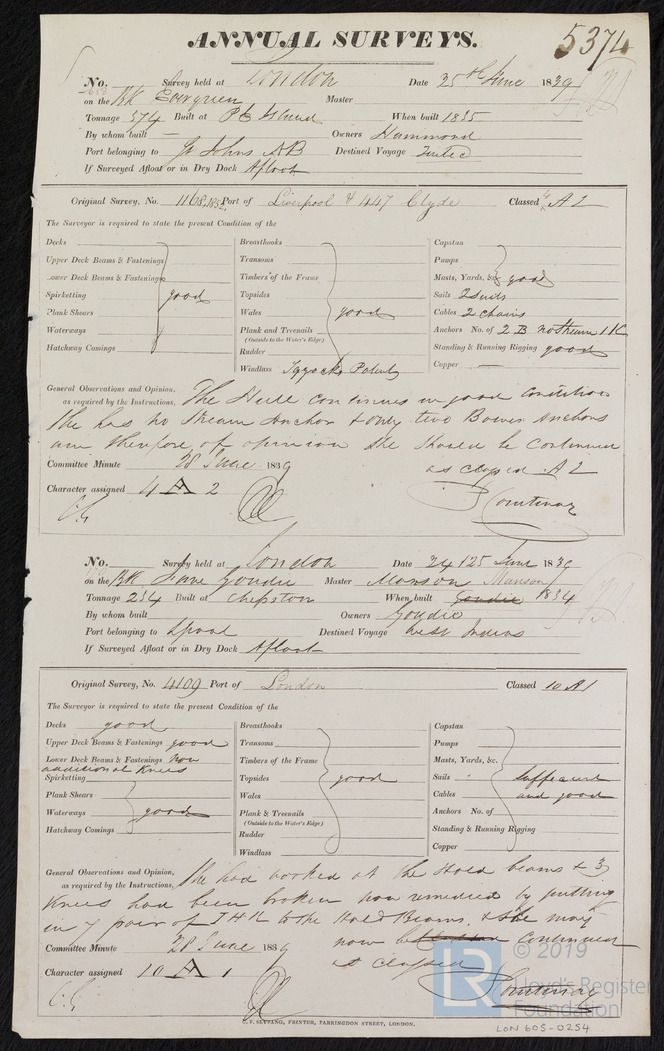 ANNUAL SURVEYS. 5374
No. Survey held at London Date 25th June 1839
on the Bk Evergreen Master
Tonnage 574 Built at PE Island When built 1835
By whom built — Owners Hammond
Port belonging to St Johns NB Destined Voyage
If Surveyed Afloat or in Dry Dock Afloat
Original Survey, No. 1168 Port of Liverpool & 447 Clyde Classed 4 A 2
The Surveyor is required to state the present Condition of the
Decks Breasthooks Capstan
Upper Deck Beams & Fastenings Transoms Pumps
Lower Deck Beams & Fastenings Timbers of the Frame Masts, Yards, &c. good
Spirketting good Topsides Sails 2 suits
Plank Shears Wales good Cables 2 chains
Waterways Plank and Treenails Anchors No. of 2 B no stream 1 K
(Outside to the Water's Edge)
Hatchway Comings Rudder Standing & Running Rigging good
Windlass Tyzacks Patent Copper —
General Observations and Opinion, The Hull continues in good condition
as required by the Instructions,
She has no Stream Anchor & only two Bower Anchors
am therefore of opinion she should be continued
Committee Minute 28 June 1839 as classed A 2
Character assigned 4 A 2 Courtenay
No. Survey held at London Date 24 & 25 June 1839
on the Bk Jane Goudie Master Manson Manson
Tonnage 254 Built at Chepstow When built Goudie 1834
By whom built Owners Goudie
Port belonging to Lpool Destined Voyage West Indies
If Surveyed Afloat or in Dry Dock Afloat
Original Survey, No. 4109 Port of London Classed 10 A 1
The Surveyor is required to state the present Condition of the
Decks good Breasthooks Capstan
Upper Deck Beams & Fastenings good Transoms Pumps
Lower Deck Beams & Fastenings now Timbers of the Frame Masts, Yards, &c.
additional Knees
Spirketting Topsides good Sails Sufficient
Plank Shears Wales Cables and good
Waterways good Plank & Treenails Anchors No. of
(Outside to the Water's Edge)
Hatchway Comings Rudder Standing & Running Rigging
Windlass Copper
General Observations and Opinion, She had worked at the Hold beams & 3
as required by the Instructions,
Knees had been broken now remedied by putting
in 7 pair of I H K to the Hold Beams. & she may
Committee Minute 28 June 1839 now be continued
Character assigned 10 A 1 as classed
Courtenay
© 2019
LR Lloyd's Register
Foundation
PRINTER, FARRINGDON STREET, LONDON.
LON 605-0254